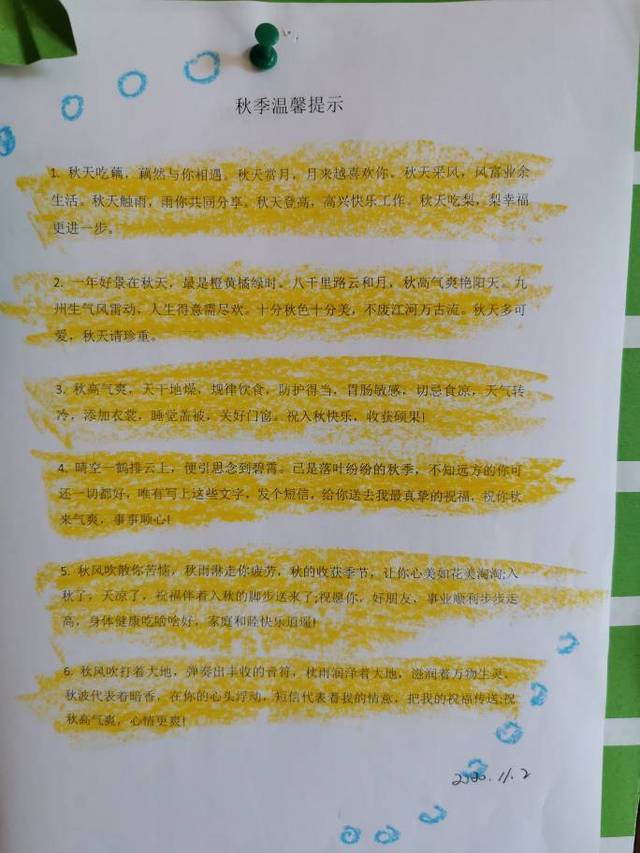 秋季温馨提示
1. 秋天吃藕，藕然与你相遇。秋天赏月，月来越喜欢你。秋天采风，风富业余
生活。秋天触雨，雨你共同分享。秋天登高，高兴快乐工作。秋天吃梨，梨幸福
更进一步。
2. 一年好景在秋天，最是橙黄橘绿时。八千里路云和月，秋高气爽艳阳天。九
州生气风雷动，人生得意需尽欢。十分秋色十分美，不废江河万古流。秋天多可
爱，秋天请珍重。
3. 秋高气爽，天干地燥，规律饮食，防护得当，胃肠敏感，切忌食凉，天气转
冷，添加衣裳，睡觉盖被，关好门窗。祝入秋快乐，收获硕果！
4. 晴空一鹤排云上，便引思念到碧霄。已是落叶纷纷的秋季，不知远方的你可
还一切都好，唯有写上这些文字，发个短信，给你送去我最真挚的祝福，祝你秋
来气爽，事事顺心！
5. 秋风吹散你苦恼，秋雨淋走你疲劳，秋的收获季节，让你心美如花美淘淘；入
秋了，天凉了，祝福伴着入秋的脚步送来了；祝愿你，好朋友，事业顺利步步走
高，身体健康吃啥啥好，家庭和睦快乐逍遥！
6. 秋风吹打着大地，弹奏出丰收的音符，秋雨润泽着大地，滋润着万物生灵。
秋波代表着暗香，在你的心头浮动，短信代表着我的情意，把我的祝福传送；祝
秋高气爽，心情更爽！
2020.11.2